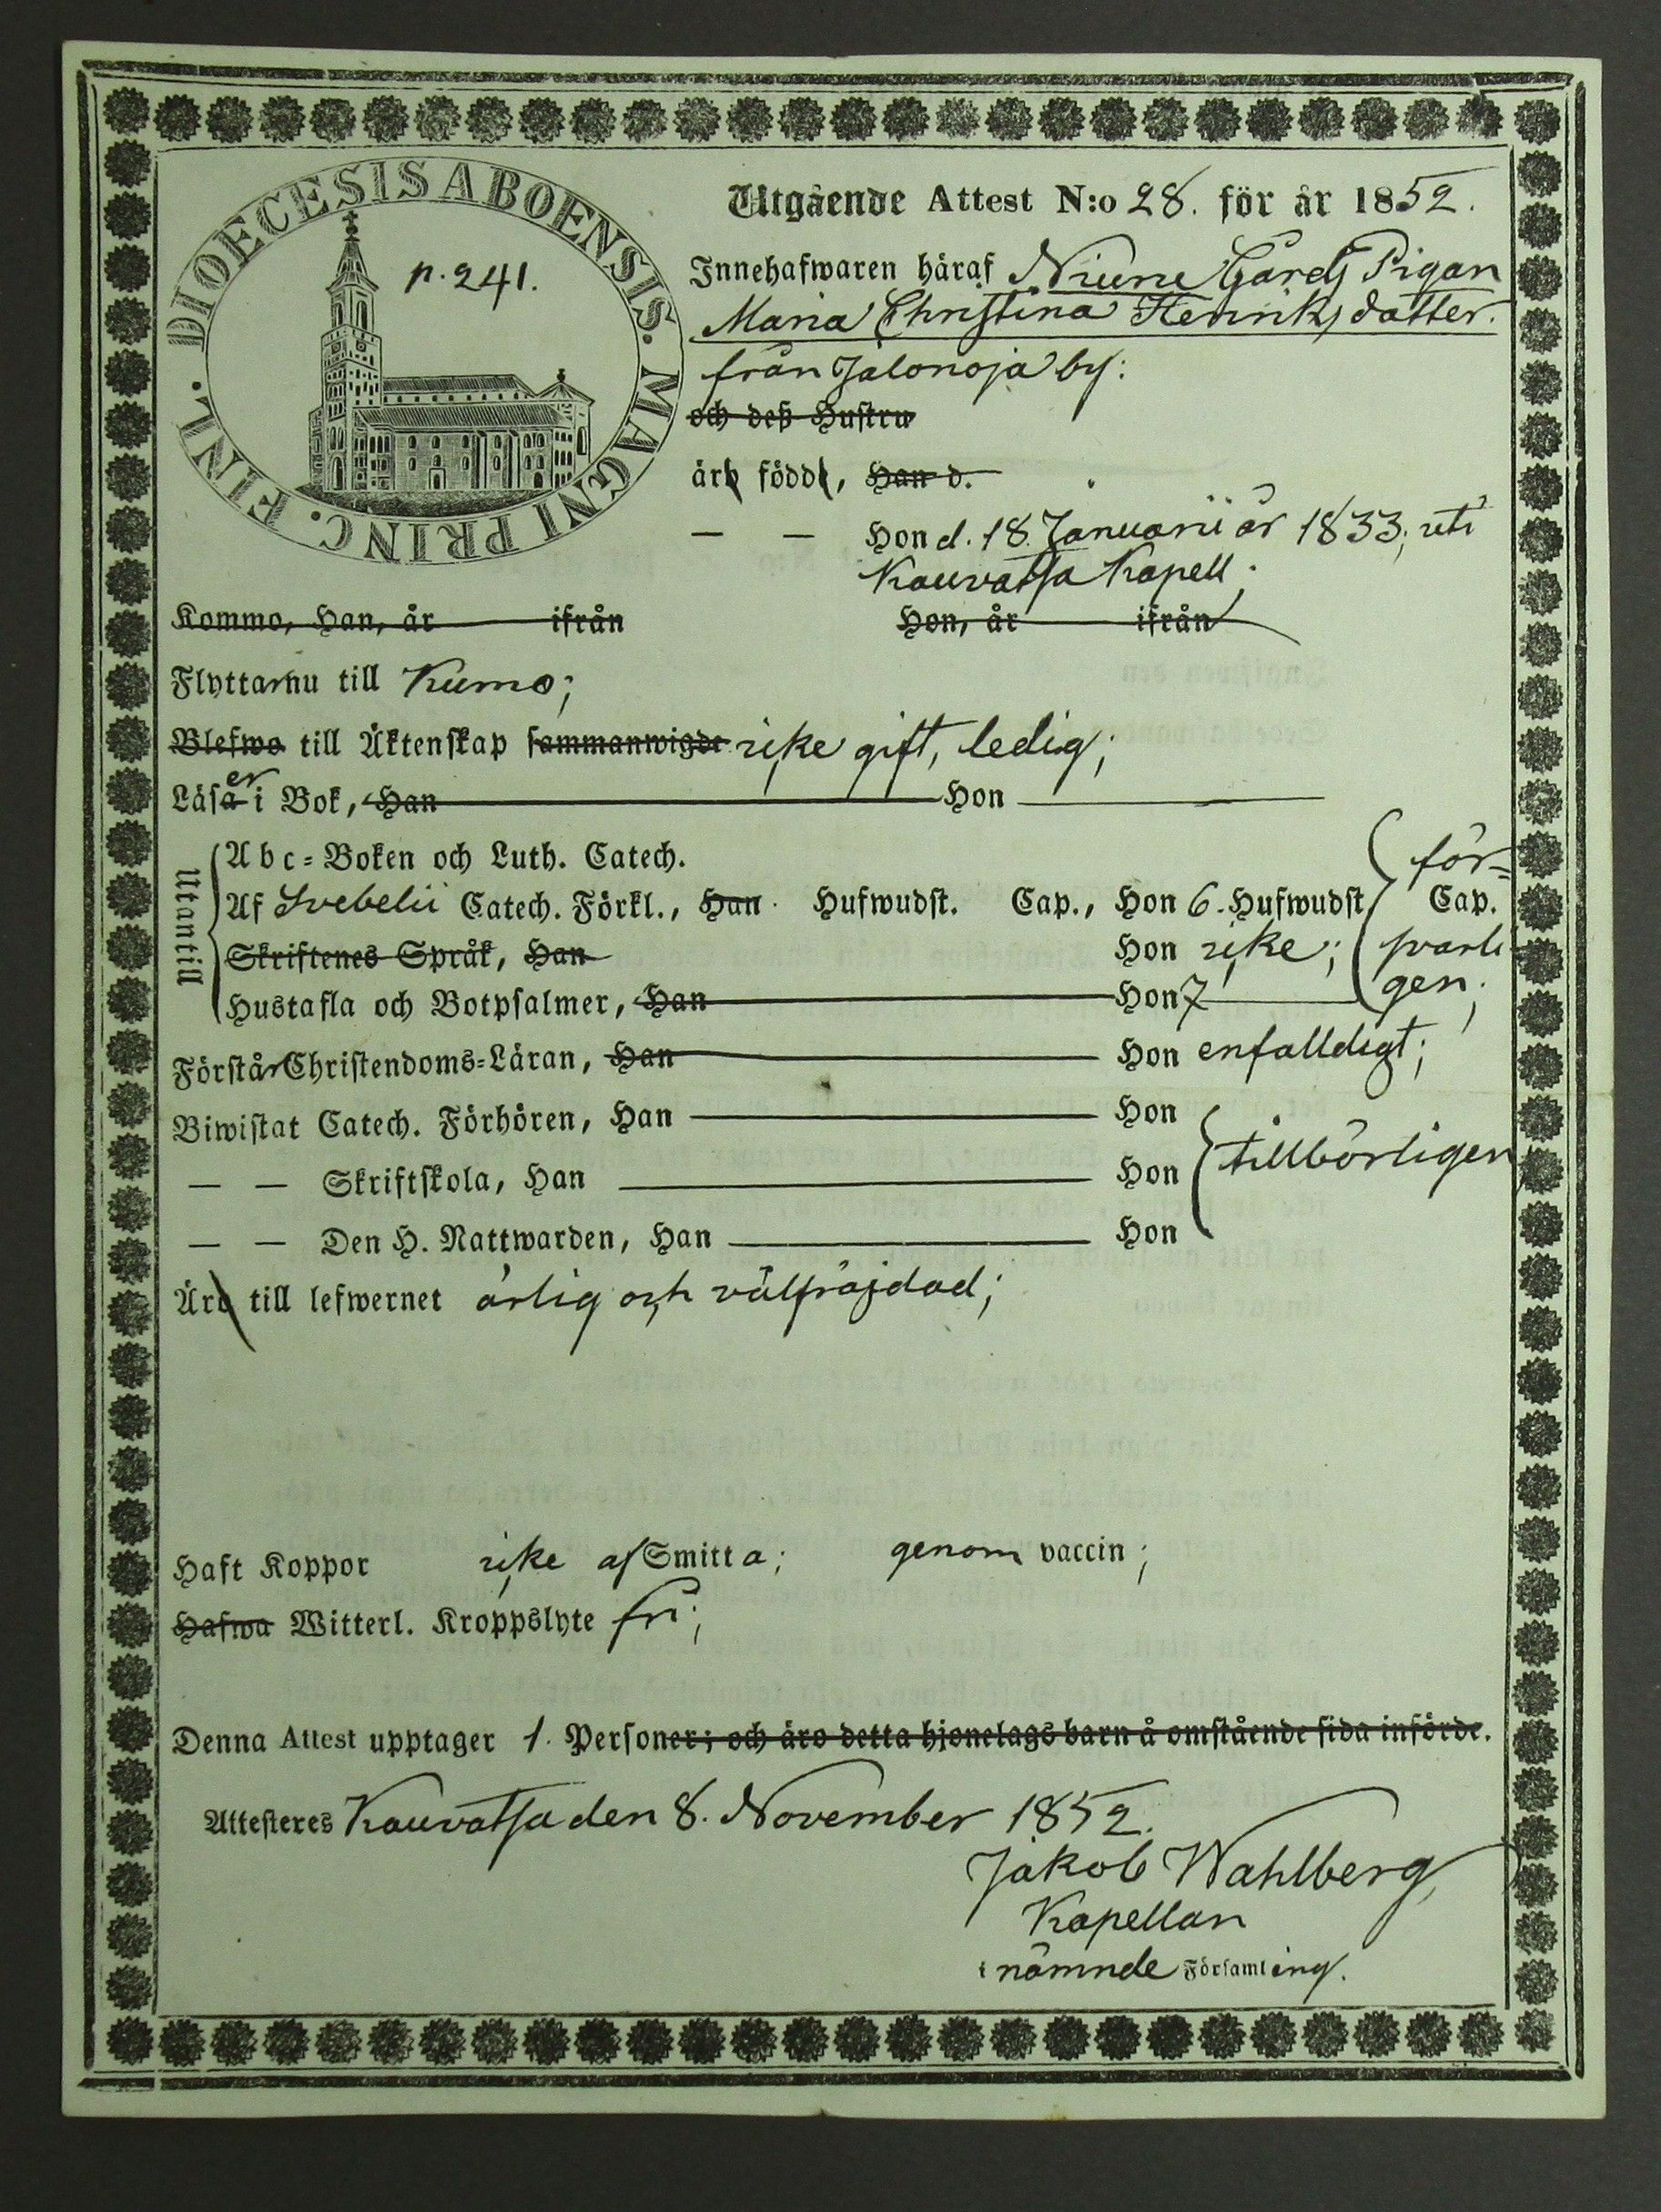 DIOECESIS ABOENSIS. MAGNI PRINC. FINL.
p. 241.
Utgående Attest N:o 28. för år 1852.
Innehafwaren häraf Niune Gårds Pigan
Maria Christina Henriksdotter.
från Jalonoja by:
och deß Hustru
äro födde, Han d.
— — Hon d. 18 Januarii år 1833, uti
Kauvatsa Kapell;
Kommo, Han, år ifrån Hon, år ifrån
Flyttar nu till Kumo;
Blefwo till Äktenskap sammanwigde icke gift, ledig;
Läsa er i Bok, Han Hon
Utantill
Abc-Boken och Luth. Catech. för-
Af Svebelii Catech. Förkl., Han Hufwudst. Cap., Hon 6. Hufwudst. Cap.
Skriftenes Språk, Han Hon icke; svarli-
Hustafla och Botpsalmer, Han Hon 7 gen;
Förstår Christendoms-Läran, Han Hon enfalldigt;
Biwistat Catech. Förhören, Han Hon
— — Skriftskola, Han Hon tillbörligen
— — Den H. Nattwarden, Han Hon
Äro till lefwernet ärlig och välfräjdad;
Haft Koppor icke af Smitta; genom vaccin;
Hafwa Witterl. Kroppslyte fri;
Denna Attest upptager 1. Personer; och äro detta hjonelags barn å omstående sida införde.
Attesteres Kauvatsa den 8. November 1852.
Jakob Wahlberg,
Kapellan
i nämnde Församling.